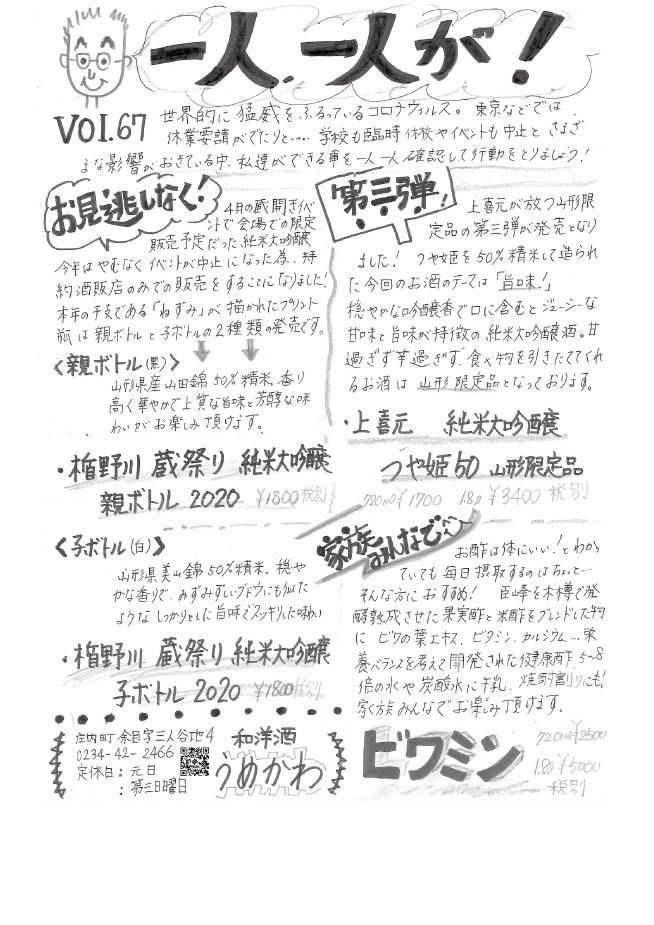 一人、一人が！
VOl.67
世界的に猛威をふるっているコロナウィルス。東京などでは
休業要請がでたりと…。学校も臨時休校やイベントも中止とさまざ
まな影響がおきている中、私達ができる事を一人一人確認して行動をとりましょう！
お見逃しなく！
4月の蔵開きイベ
ントで会場での限定
販売予定だった純米大吟醸
今年はやむなくイベントが中止になった為、特
約酒販店のみでの販売をすることになりました！
本年の干支である「ねずみ」が描かれたプリント
瓶は親ボトルと子ボトルの2種類の発売です。
〈親ボトル(黒)〉
山形県産山田錦50%精米。香り
高く華やかで上質な旨味と芳醇な味
わいがお楽しみ頂けます。
・楯野川 蔵祭り 純米大吟醸
親ボトル 2020 ¥1800税別
〈子ボトル(白)〉
山形県美山錦50%精米。穏や
かな香りで、みずみずしいブドウにも似た
ような しっかりとした旨味でスッキリした味わい
・楯野川 蔵祭り 純米大吟醸
子ボトル 2020 ¥1800税別
第三弾！
上喜元が放つ山形限
定品の第三弾が発売となり
ました！ つや姫を50%精米して造られ
た今回のお酒のテーマは「旨味！」
穏やかな吟醸香で口に含むとジューシーな
甘味と旨味が特徴の純米大吟醸酒。甘
過ぎず辛過ぎず食べ物を引きたててくれ
るお酒は 山形限定品となっております。
・上喜元 純米大吟醸
つや姫50 山形限定品
720ml¥1700 1.8ℓ¥3400 税別
家族みんなで
お酢は体にいい！とわかっ
ていても毎日摂取するのはちょっと…
そんな方におすすめ！ 臣峰を木樽で発
酵熟成させた果実酢と米酢をブレンドした物
に ビワの葉エキス、ビタミン、カルシウム…栄
養バランスを考えて開発された健康酢。5〜8
倍の水や炭酸水に牛乳、焼酎割りにも！
家族みんなでお楽しみ頂けます。
ビワミン
720ml¥2500
1.8ℓ ¥5000
税別
庄内町余目字三人谷地4
0234-42-2466
定休日：元日
：第三日曜日
和洋酒
うめかわ